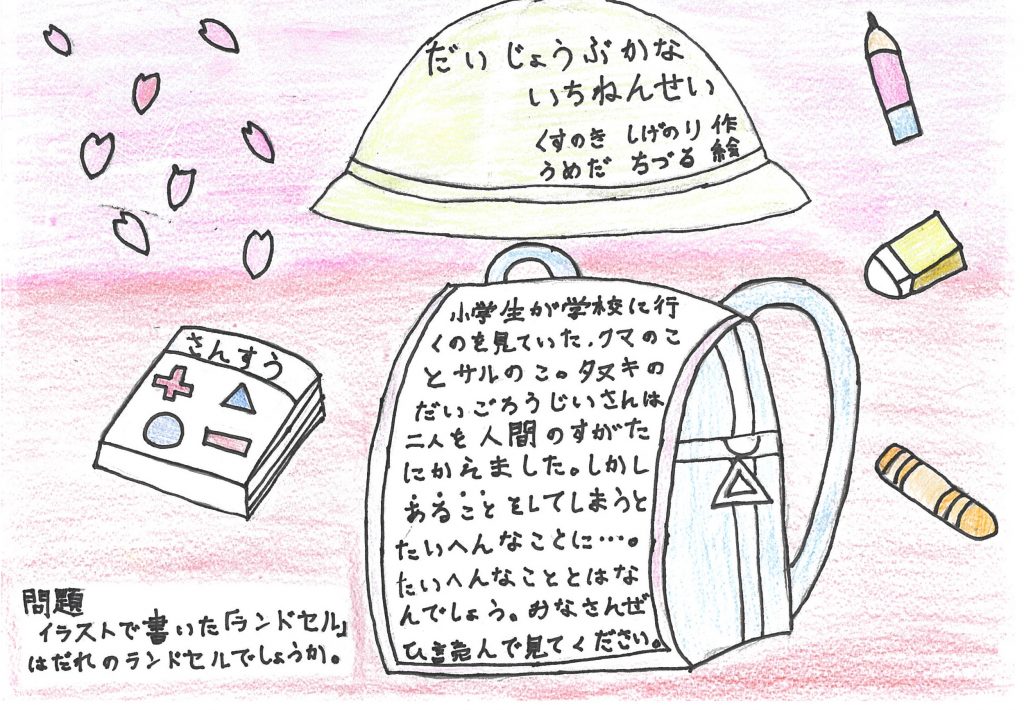 だいじょうぶかな
いちねんせい
くすのき しげのり 作
うめだ ちづる 絵
小学生が学校に行
くのを見ていた、クマのこ
とサルのこ。タヌキの
だいごろうじいさんは
二人を人間のすがた
にかえました。しかし
あることをしてしまうと
たいへんなことに…。
たいへんなこととはな
んでしょう。みなさんぜ
ひ読んで見てください。
さんすう
問題
イラストで書いた「ランドセル」
はだれのランドセルでしょうか。